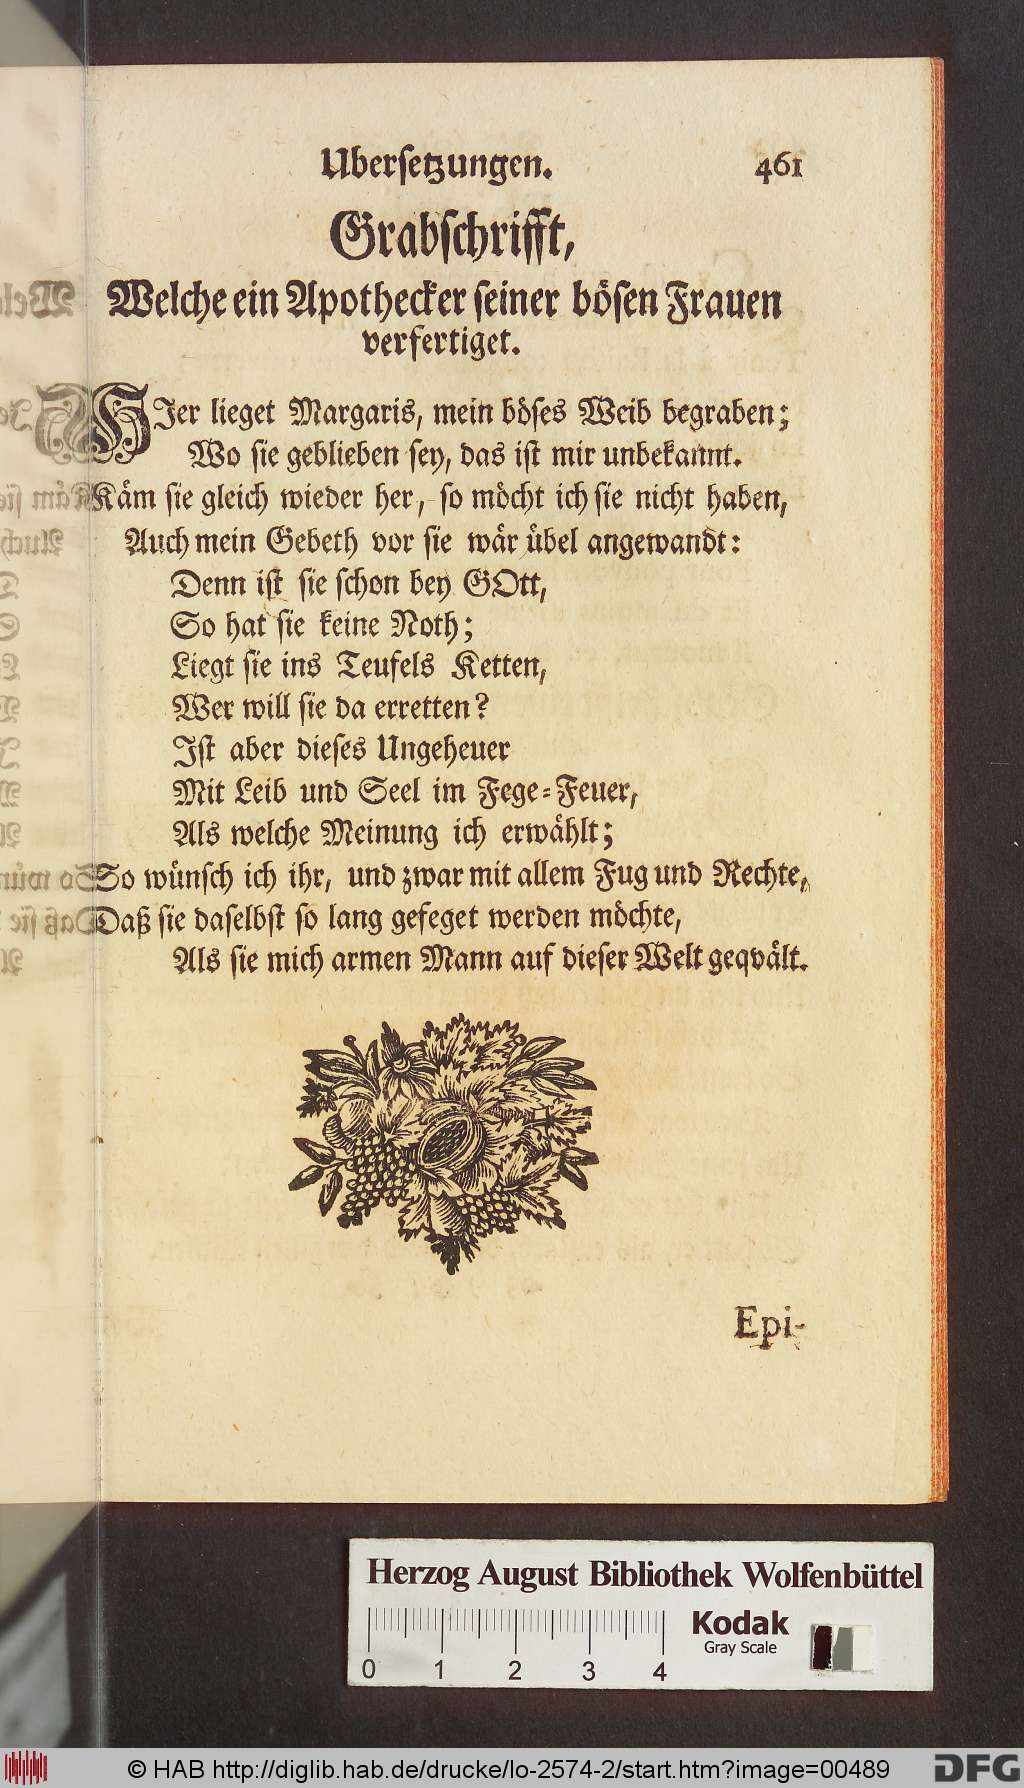 Ubersetzungen. 461
Grabschrifft,
Welche ein Apothecker seiner bösen Frauen
verfertiget.
HIer lieget Margaris, mein böses Weib begraben;
Wo sie geblieben sey, das ist mir unbekannt.
Käm sie gleich wieder her, so möcht ich sie nicht haben,
Auch mein Gebeth vor sie wär übel angewandt:
Denn ist sie schon bey GOtt,
So hat sie keine Noth;
Liegt sie ins Teufels Ketten,
Wer will sie da erretten?
Ist aber dieses Ungeheuer
Mit Leib und Seel im Fege-Feuer,
Als welche Meinung ich erwählt;
So wünsch ich ihr, und zwar mit allem Fug und Rechte,
Daß sie daselbst so lang gefeget werden möchte,
Als sie mich armen Mann auf dieser Welt geqvält.
Epi-
Herzog August Bibliothek Wolfenbüttel
Kodak
Gray Scale
0 1 2 3 4
© HAB http://diglib.hab.de/drucke/lo-2574-2/start.htm?image=00489
DFG